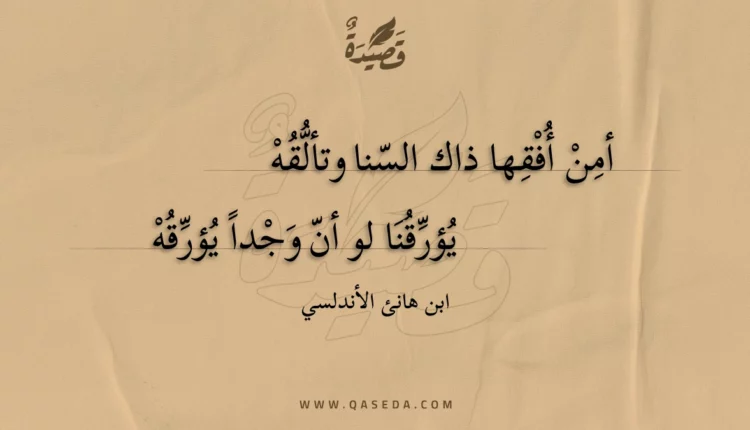 قَصِيْدَةٌ
أمِنْ أُفْقِها ذاك السّنا وتألُّقُهْ
يُؤرِّقُنَا لو أنّ وَجْداً يُؤرِّقُهْ
ابن هانئ الأندلسي
WWW.QASEDA.COM